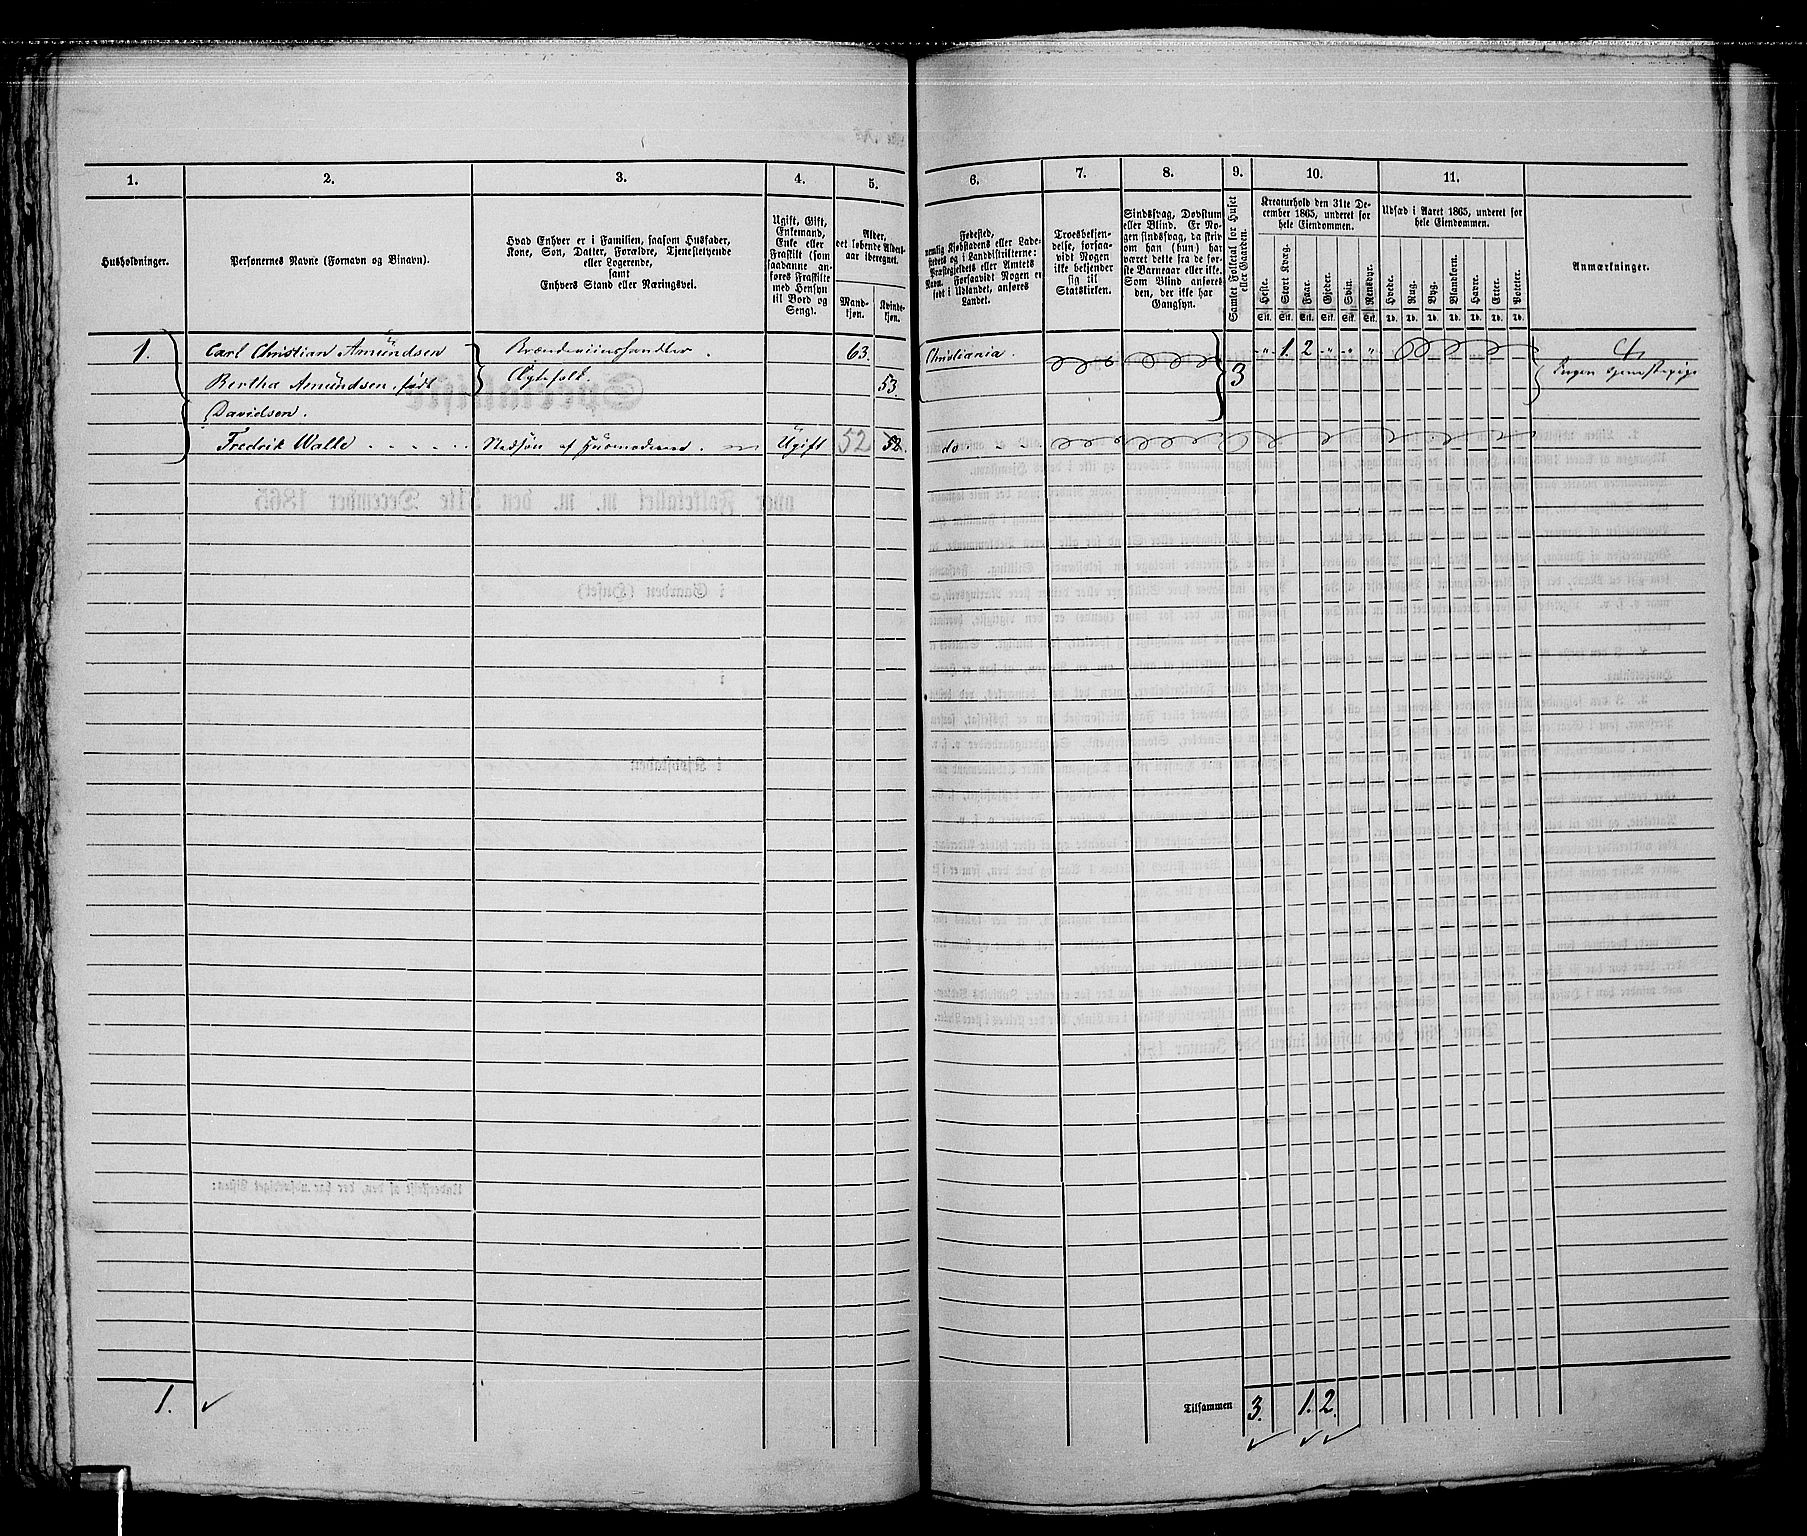 1.
2.
3.
4.
5.
6.
7.
8.
9.
10.
11.
Husholdninger.
Personernes Navne (Fornavn og Binavn).
Hvad Enhver er i Familien, saasom Husfader,
Kone, Søn, Datter, Forældre, Tjenestetyende
eller Logerende,
samt
Enhvers Stand eller Næringsvei.
Ugift, Gift,
Enkemand,
Enke eller
Fraskilt (som
saadanne an-
føres Fraskilte
med Hensyn
til Bord og
Seng).
Alder,
det løbende Alders-
aar iberegnet.
Mand-
kjøn.
Kvinde-
kjøn.
Fødested,
nemlig Kjøbstadens eller Lade-
stedets og i Landdistrikterne:
Præstegjeldets eller Amtets
Navn. Forsaavidt Nogen er
født i Udlandet, anføres
Landet.
Troesbekjen-
delse, forsaa-
vidt Nogen
ikke bekjender
sig til
Statskirken.
Sindssvag, Døvstum
eller Blind. Er No-
gen sindssvag, da skriv
om han (hun) har
været dette fra de før-
ste Barneaar eller ikke.
Som Blind anføres
den, der ikke har
Gangsyn.
Samlet Folketal for Huset
eller Gaarden.
Kreaturhold den 31te De-
cember 1865, underet for
hele Eiendommen.
Heste.
Stort Kvæg.
Faar.
Gjeder.
Svin.
Rensdyr.
Stk. Stk. Stk. Stk. Stk. Stk.
Udsæd i Aaret 1865, underet for
hele Eiendommen.
Hvede.
Rug.
Byg.
Blandkorn.
Havre.
Erter.
Poteter.
Td. Td. Td. Td. Td. Td. Td.
Anmærkninger.
1. Carl Christian Amündsen Brændeviinshandler. 63. Christiania. " 1. 2 " " "
Bertha Amündsen, født Ægtefolk. 53. 3 Ingen
Davidsen.
Fredrik Walle Ugift 52 52. do
1. Tilsammen 3. 1. 2.